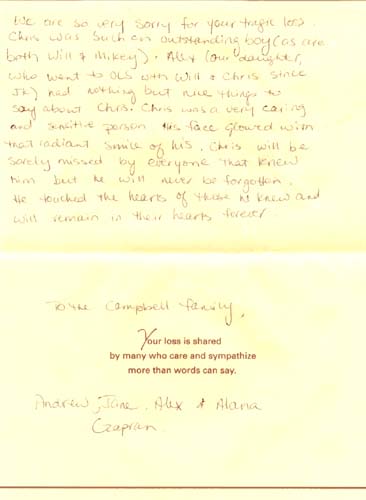 We are so very sorry for your tragic loss.
Chris was such an outstanding boy (as are
both Will & Mikey). Alex (our daughter,
who went to OLS with Will & Chris since
JK) had nothing but nice things to
say about Chris. Chris was a very caring
and sensitive person. His face glowed with
that radiant smile of his. Chris will be
sorely missed by everyone that knew
him but he will never be forgotten.
He touched the hearts of those he knew and
will remain in their hearts forever.
To the Campbell family,
Your loss is shared
by many who care and sympathize
more than words can say.
Andrew, Jane, Alex & Alana
Czapran